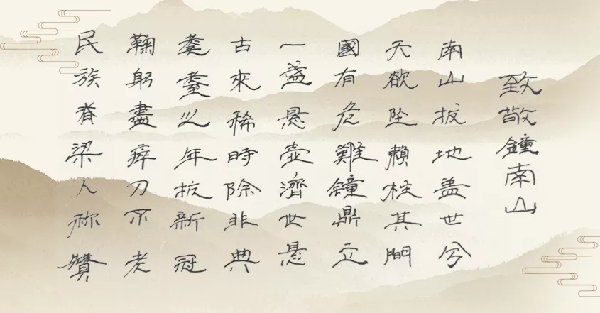 致敬鐘南山
南山拔地蓋世兮
天欲坠賴其間
國有危難鐘鼎立
一盞悬壺濟世悬
古來稀時除非典
耄耋之年抗新冠
鞠躬盡瘁刀不老
民族脊梁人称讚